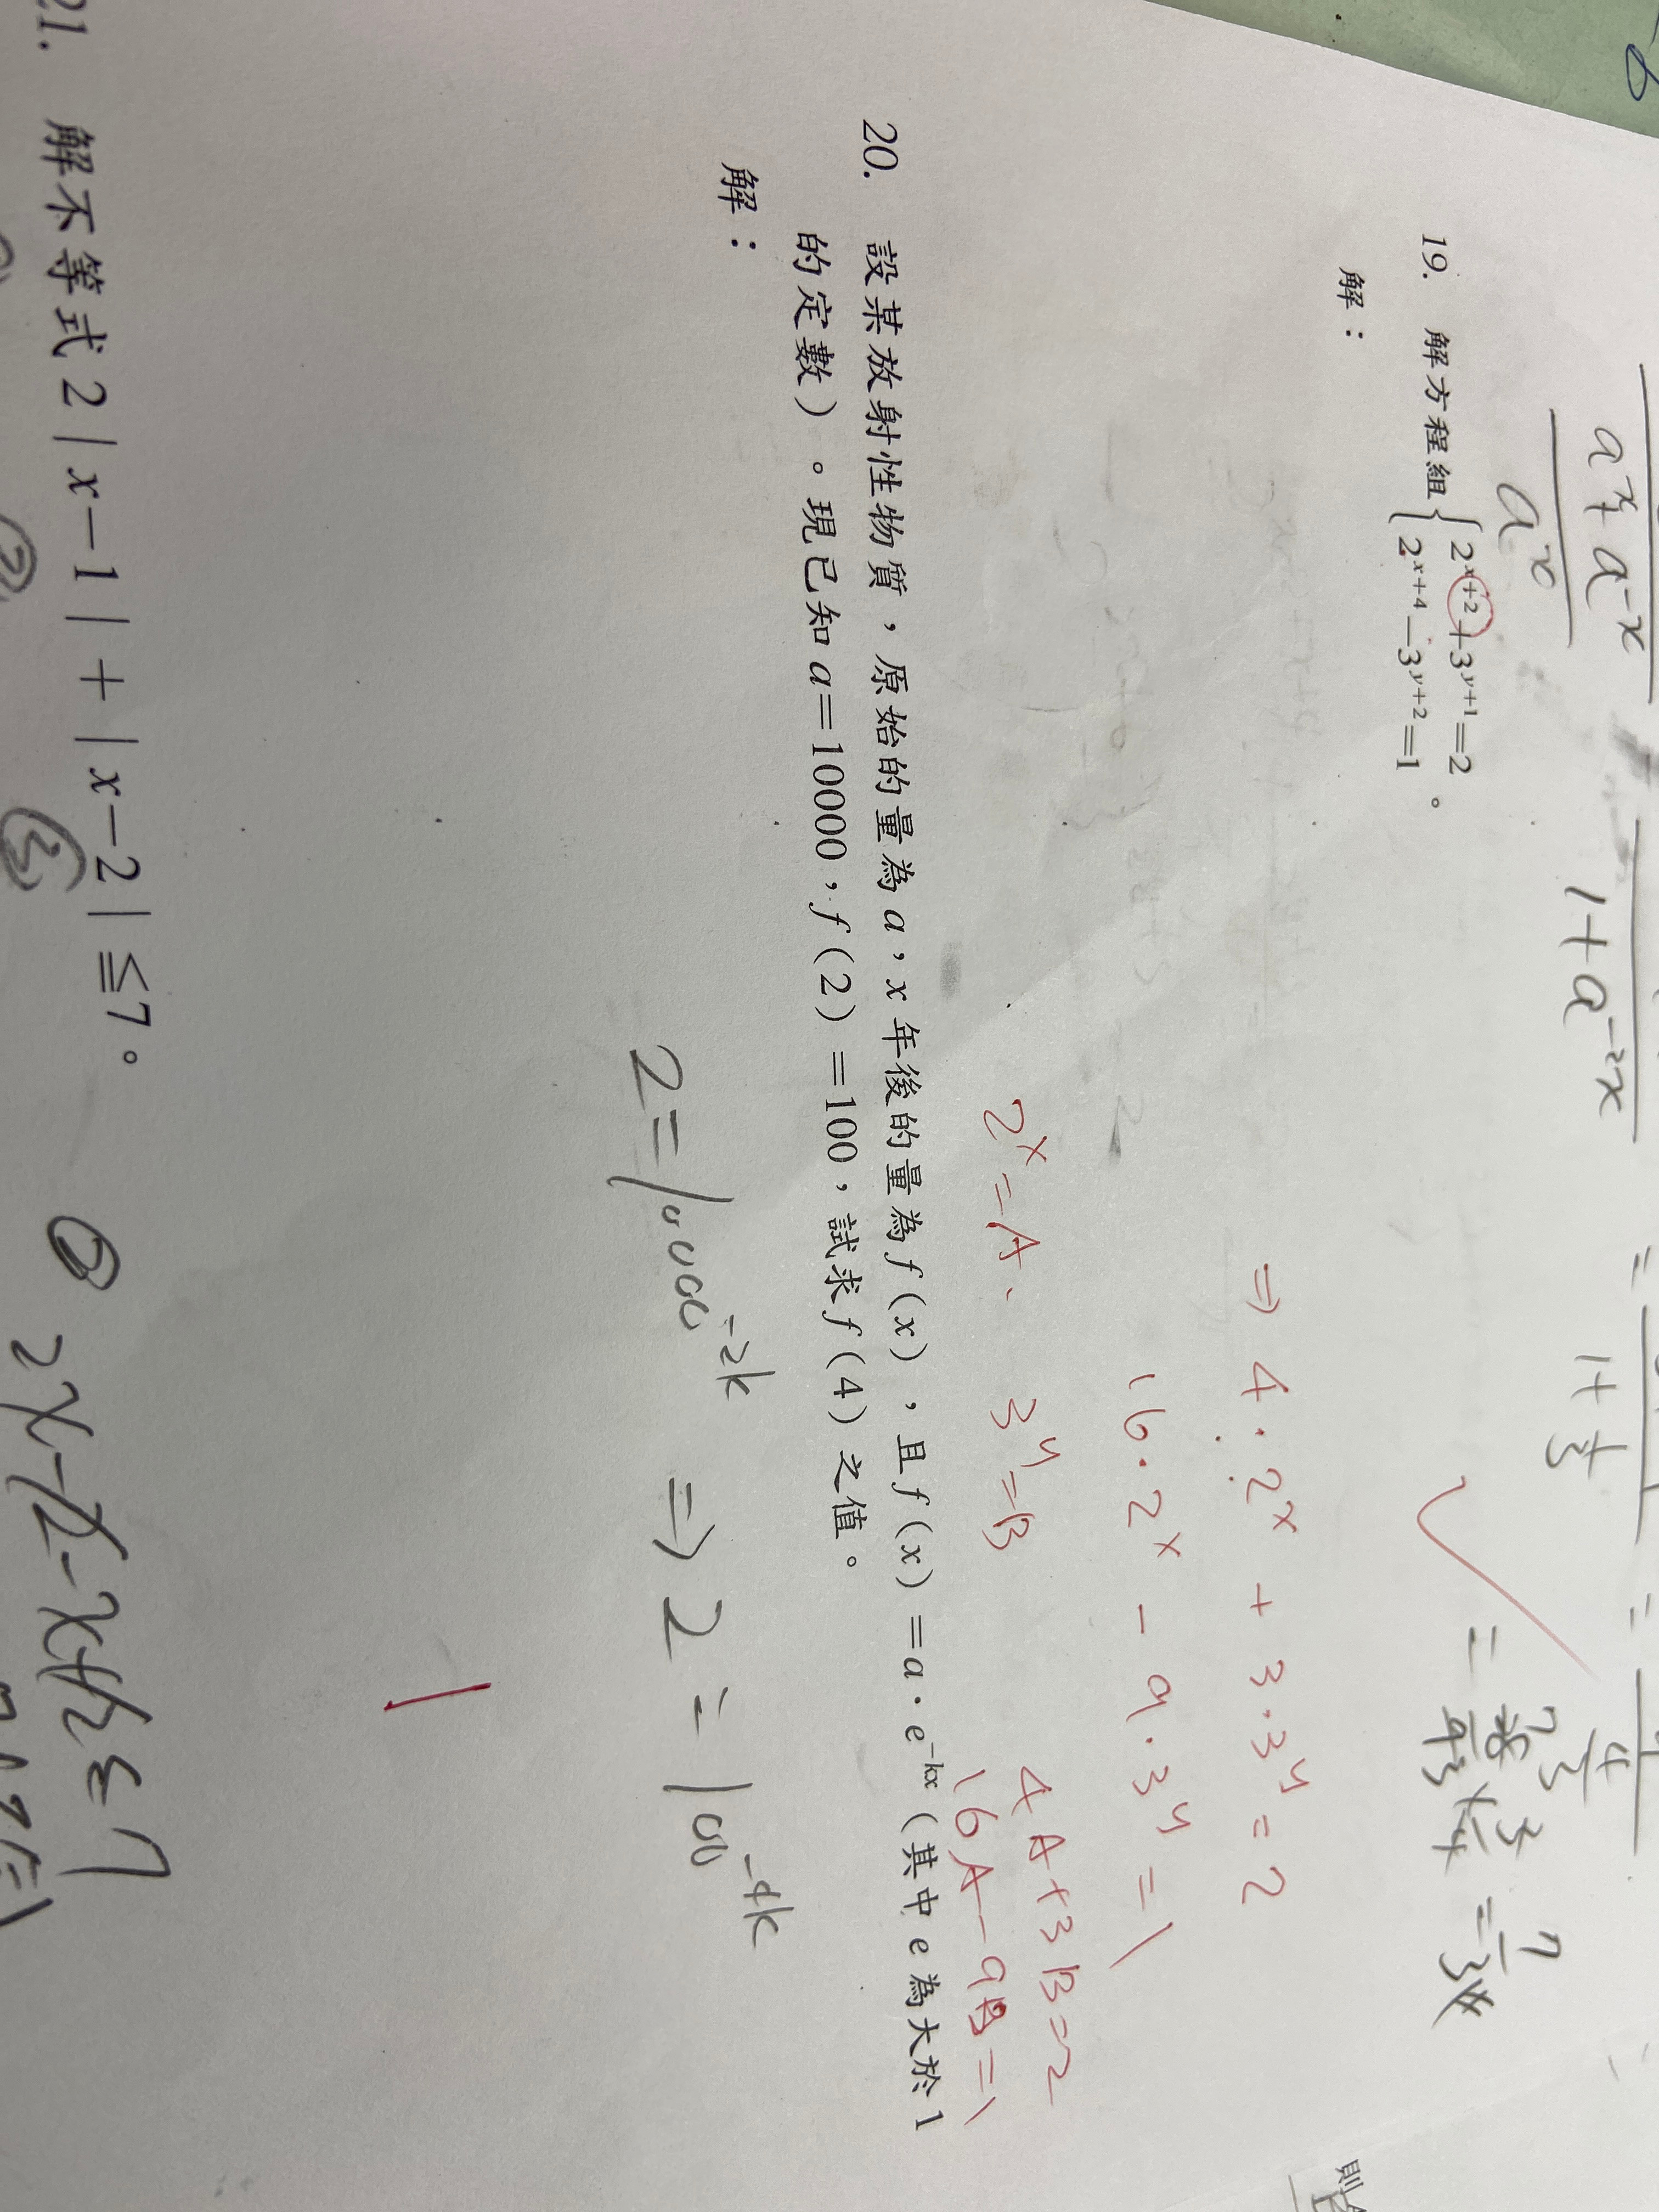 a^x + a^-x
a^x
1+a^-2x
=
1+⅓
19. 解方程組{2^x+2+3^y+1=2
2^x+4−3^y+2=1 。
解：
⇒ 4·2^x + 3·3^y = 2
16·2^x − 9·3^y = 1
2^x = A、 3^y = B
4A+3B=2
16A−9B=1
20. 設某放射性物質，原始的量為a，x年後的量為f(x)，且f(x)=a·e^−kx（其中e為大於1
的定數）。現已知a=10000，f(2)=100，試求f(4)之值。
解：
2=10000^-2k ⇒ 2=100^-4k
21. 解不等式2|x−1|+|x−2|≤7。
② ③
① 2x-2-x+2≤7
則